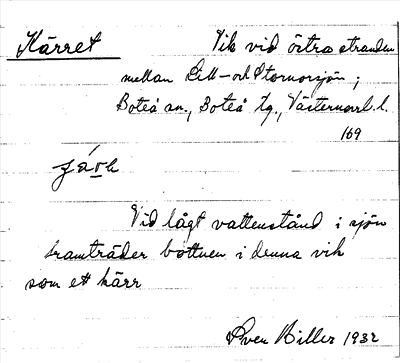 Kärret
Vik vid östra stranden
mellan Lill- och Stornorsjön;
Boteå sn., Boteå tg., Västernorrl. l.
169
Vid lågt vattenstånd i sjön
framträder bottnen i denna vik
som ett kärr
Sven Biller 1932